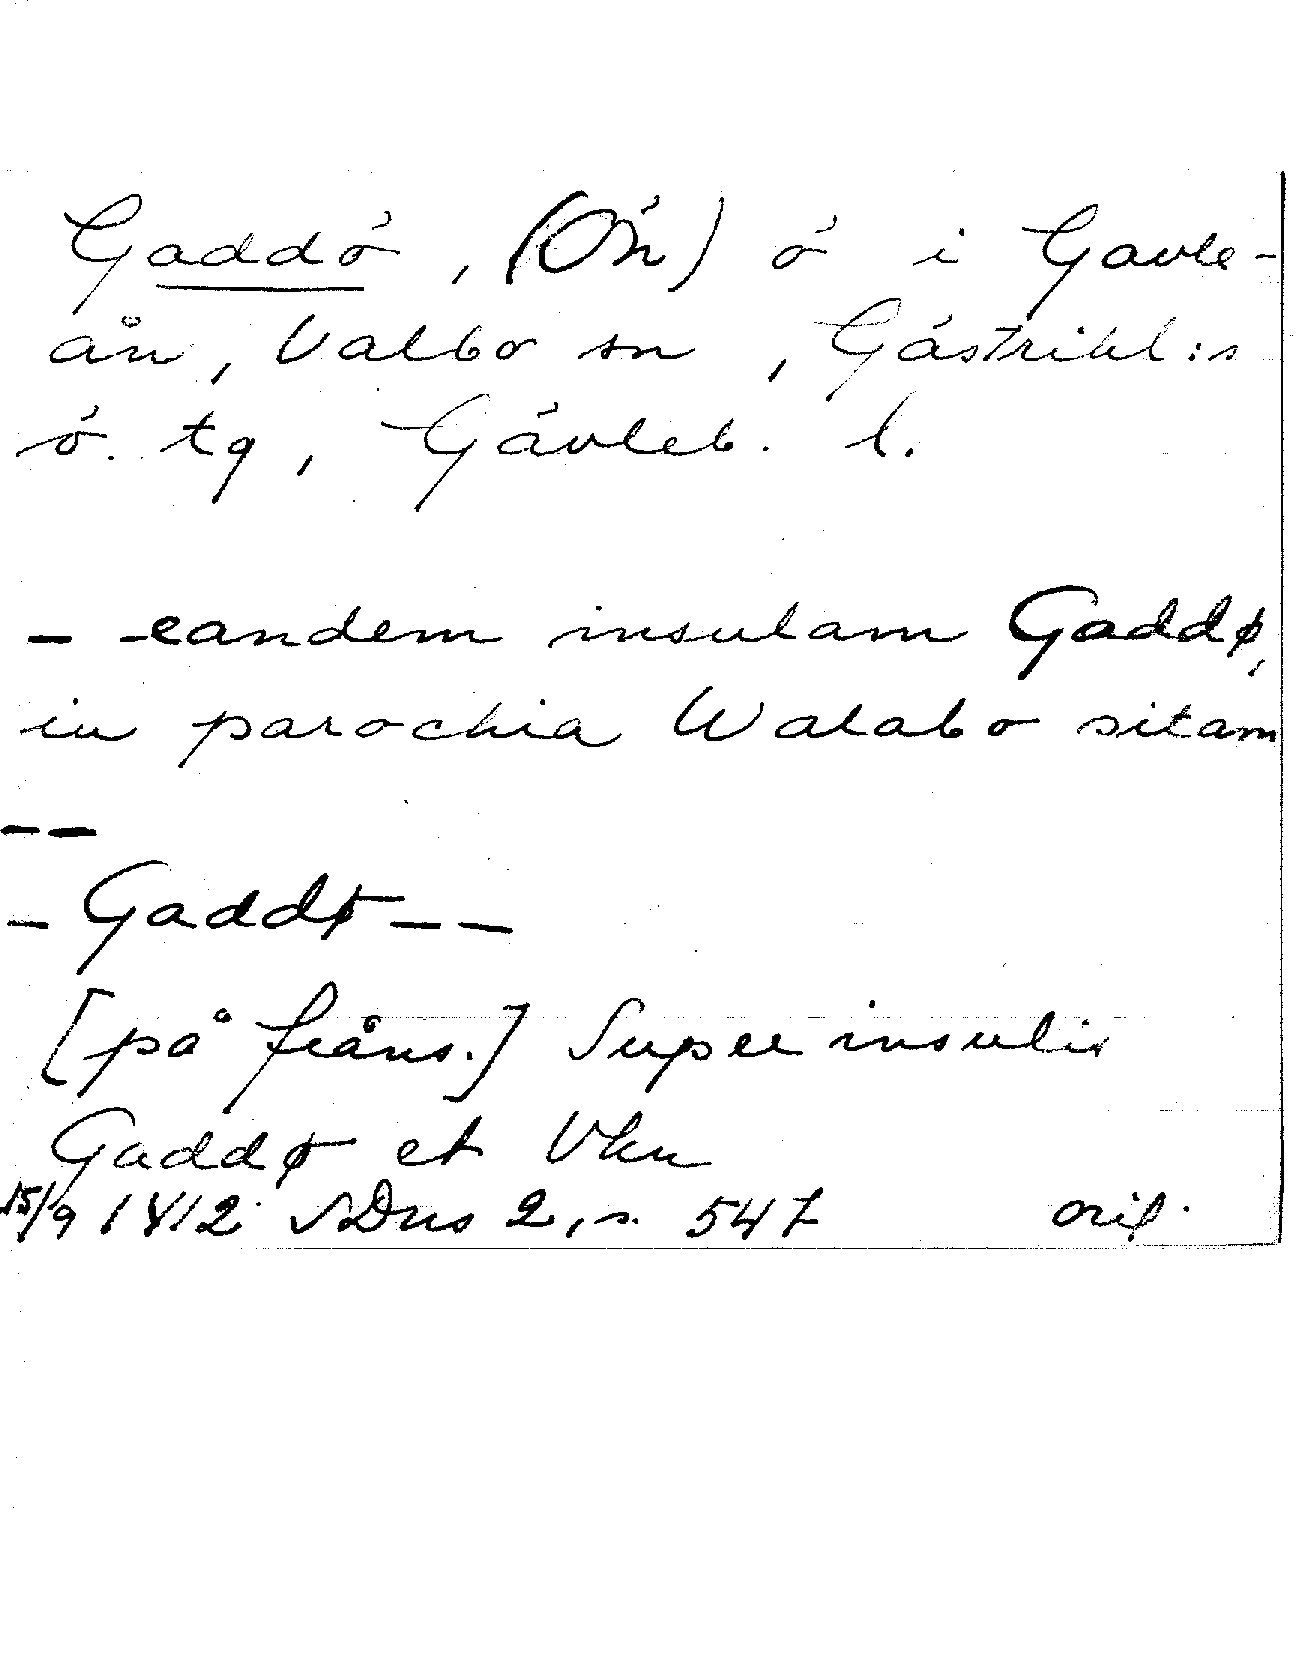 Gaddö, (Ön) ö i Gavle-
ån, Valbo sn, Gästrikl:s
ö. tg, Gävleb. l.
- -eandem insulam Gaddø,
in parochia Walabo sitam
--
- Gaddø - -
[på fråns.] Super insulis
Gaddø et Vkn
15/9 1412 SDns 2, s. 547 orig.